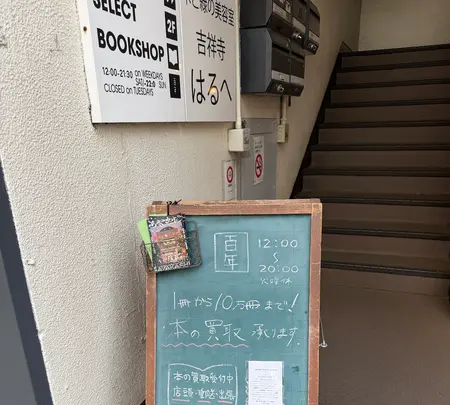 SELECT
BOOKSHOP
2F
12:00-21:30 on WEEKDAYS
CLOSED on TUESDAYS
の美容室
吉祥寺
はるへ
百年
12:00
〜
20:00
火曜休
1冊から10万冊まで!
本の買取 承ります。
本の買取受付中
店頭・郵送・出張